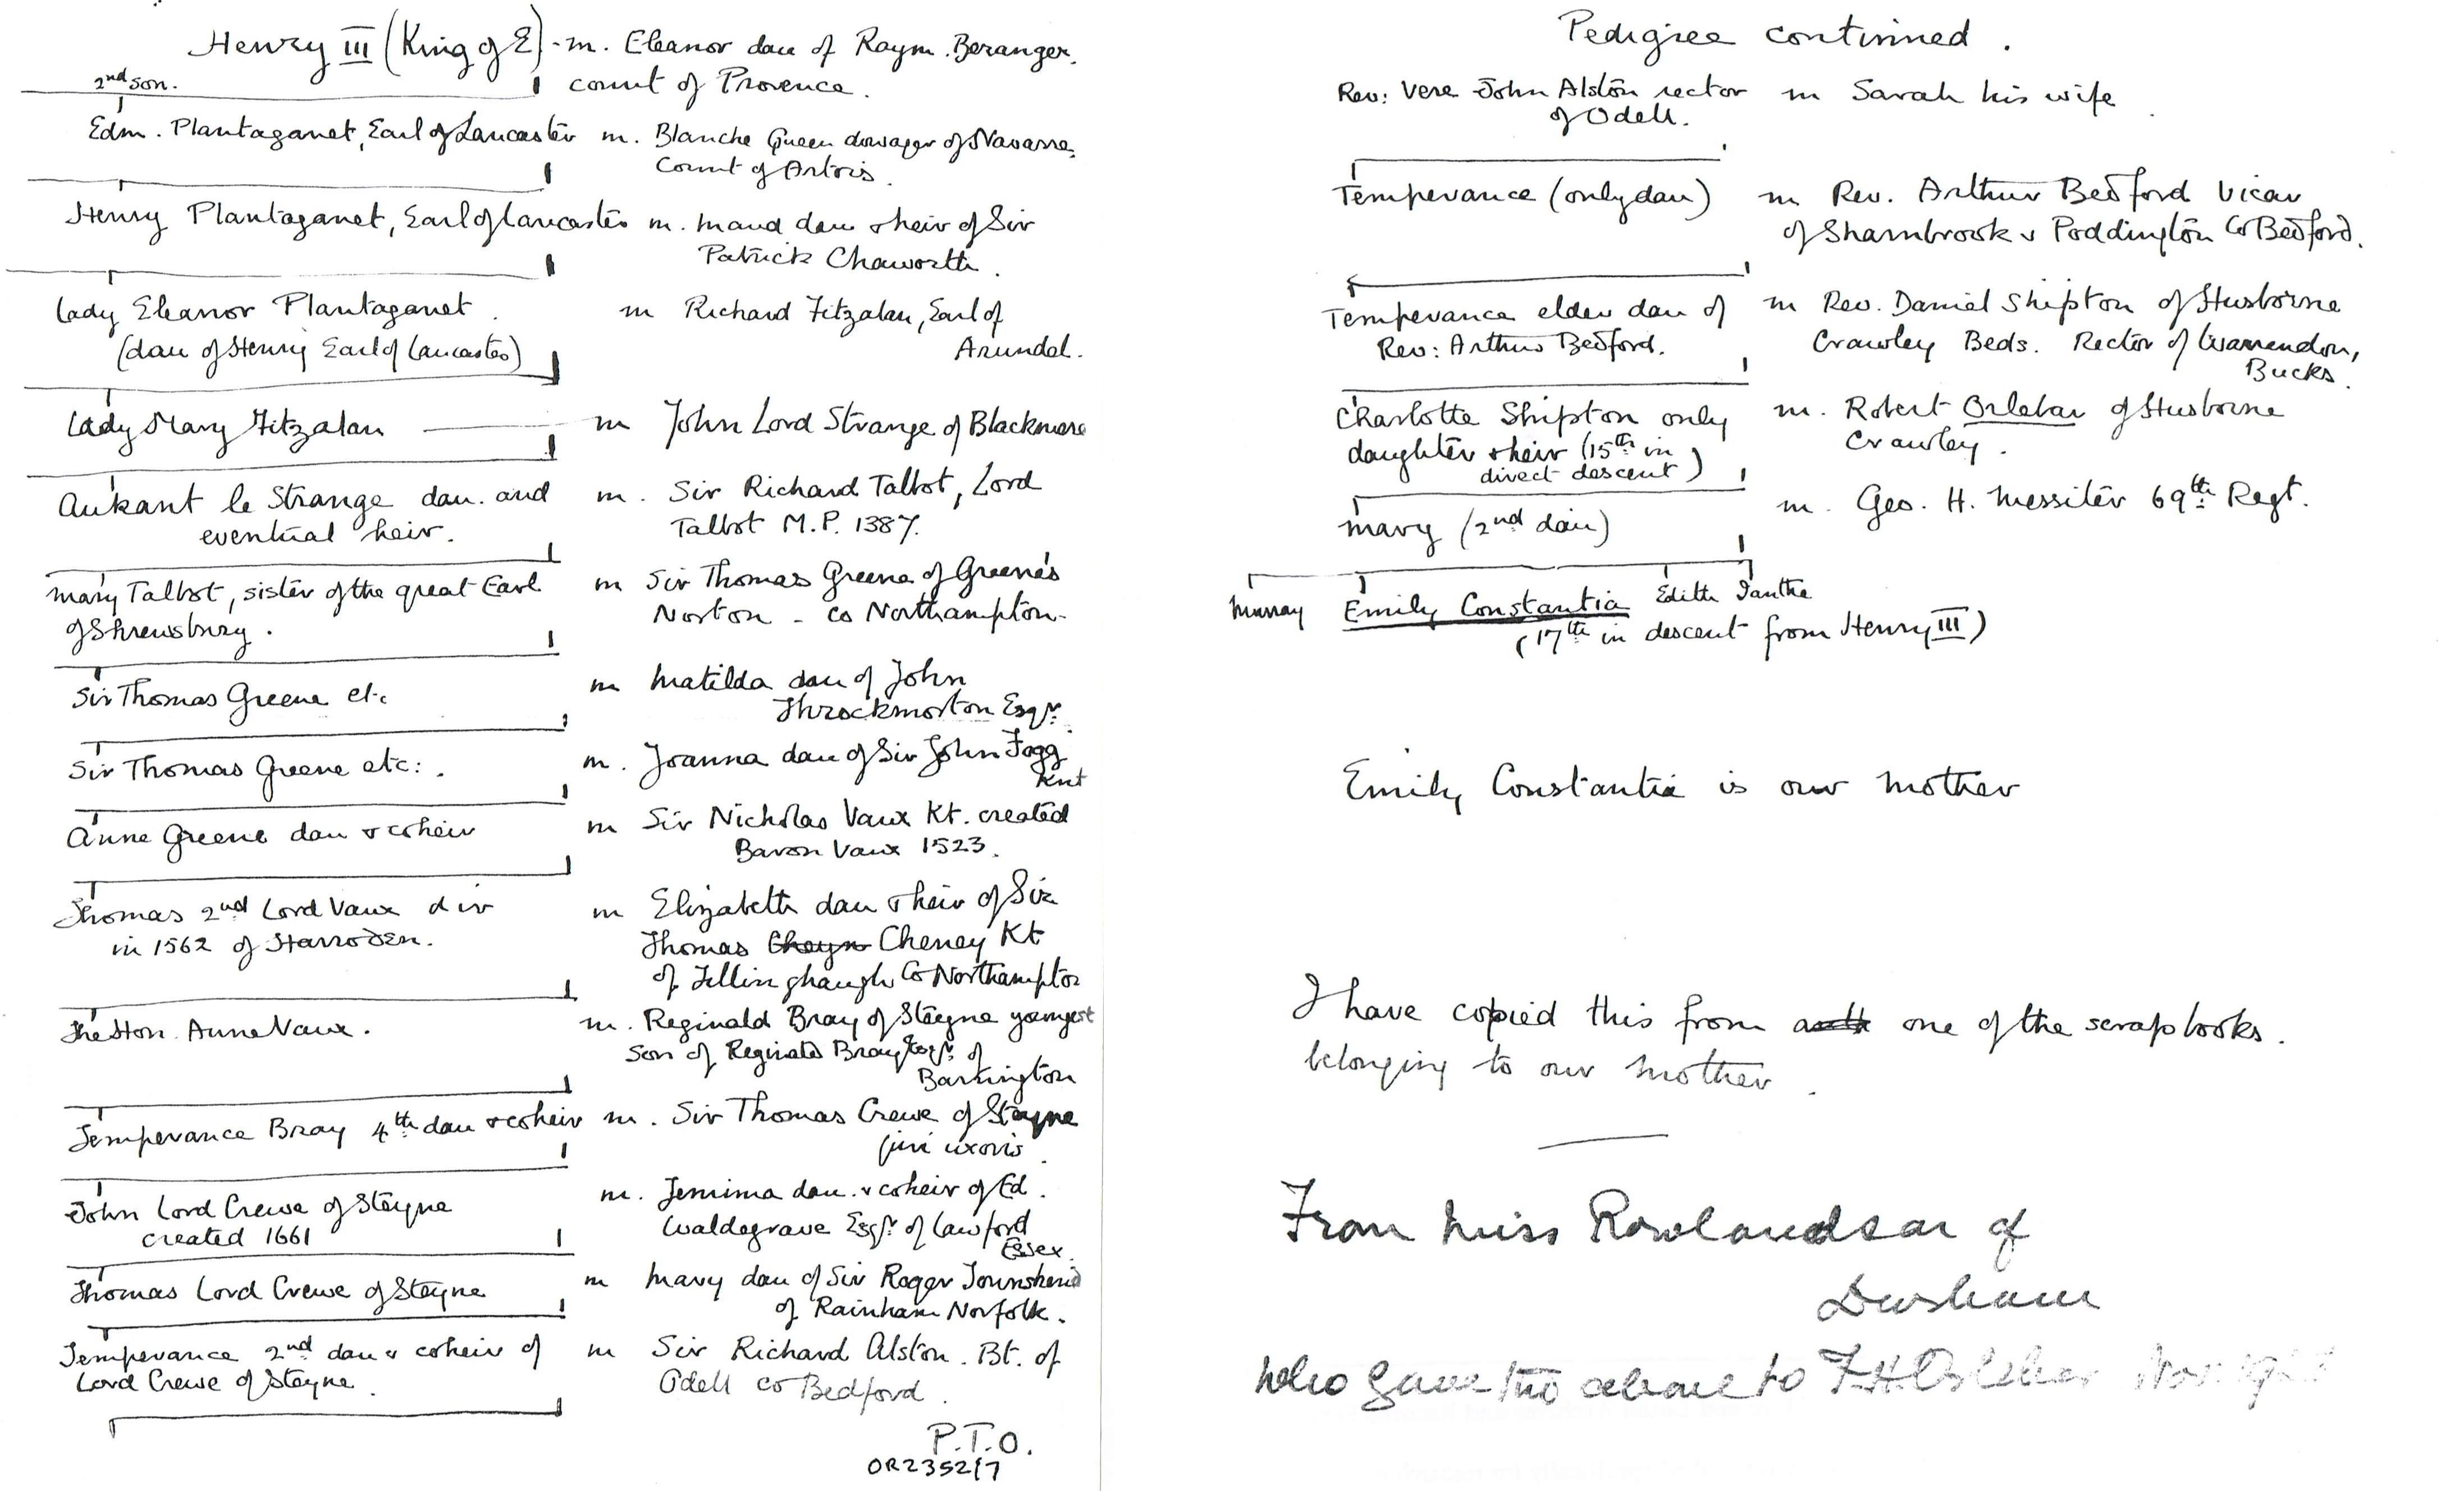 Henry III (King of E) - m. Eleanor dau of Raym. Beranger.
2nd son. count of Provence.
Edm. Plantaganet, Earl of Lancaster m. Blanche Queen dowager of Navarre,
Count of Artois.
Henry Plantaganet, Earl of Lancaster m. Maud dau & heir of Sir
Patrick Chaworth.
Lady Eleanor Plantaganet. m Richard Fitzalan, Earl of
(dau of Henry Earl of Lancaster) Arundel.
Lady Mary Fitzalan m John Lord Strange of Blackmere
Aukant le Strange dau. and m. Sir Richard Talbot, Lord
eventual heir. Talbot M.P. 1387.
Mary Talbot, sister of the great Earl m Sir Thomas Greene of Greene's
of Shrewsbury. Norton - co Northampton.
Sir Thomas Greene etc m Matilda dau of John
Throckmorton Esqr.
Sir Thomas Greene etc: . m. Joanna dau of Sir John Fogg
Knt
Anne Greene dau & coheir m Sir Nicholas Vaux Kt. created
Baron Vaux 1523.
Thomas 2nd Lord Vaux m Elizabeth dau & heir of Sir
in 1562 of Harroden. Thomas Cheyn Cheney Kt
of Co Northampton
The Hon. Anne Vaux. m. Reginald Bray of Steyne youngest
son of Reginald Bray Esqr. of
Barrington
Temperance Bray 4th dau & coheir m. Sir Thomas Crewe of Stayne
(juri uxoris.
John Lord Crewe of Steyne m. Jemima dau. & coheir of Ed.
created 1661 Waldegrave Esqr. of Lawford
Essex.
Thomas Lord Crewe of Steyne m Mary dau of Sir Roger Townshend
of Rainham Norfolk.
Temperance 2nd dau & coheir of m Sir Richard Alston. Bt. of
Lord Crewe of Steyne. Odell co Bedford.
P.T.O.
OR2352/7
Pedigree continued.
Rev: Vere John Alston rector m Sarah his wife.
of Odell.
Temperance (only dau) m Rev. Arthur Bedford Vicar
of Sharnbrook & Poddington Co Bedford.
Temperance elder dau of m Rev. Daniel Shipton of Husborne
Rev: Arthur Bedford. Crawley Beds. Rector of Wavendon,
Bucks.
Charlotte Shipton only m. Robert Orlebar of Husborne
daughter & heir (15th in Crawley.
direct descent)
Mary (2nd dau) m. Geo. H. Messiter 69th Regt.
Murray Emily Constantia Edith Ianthe
(17th in descent from Henry III)
Emily Constantia is our mother
I have copied this from one of the scrapbooks.
belonging to our mother.
From Miss Rowlandson of
Dursham
who gave the above to F.H. Orlebar Nov.